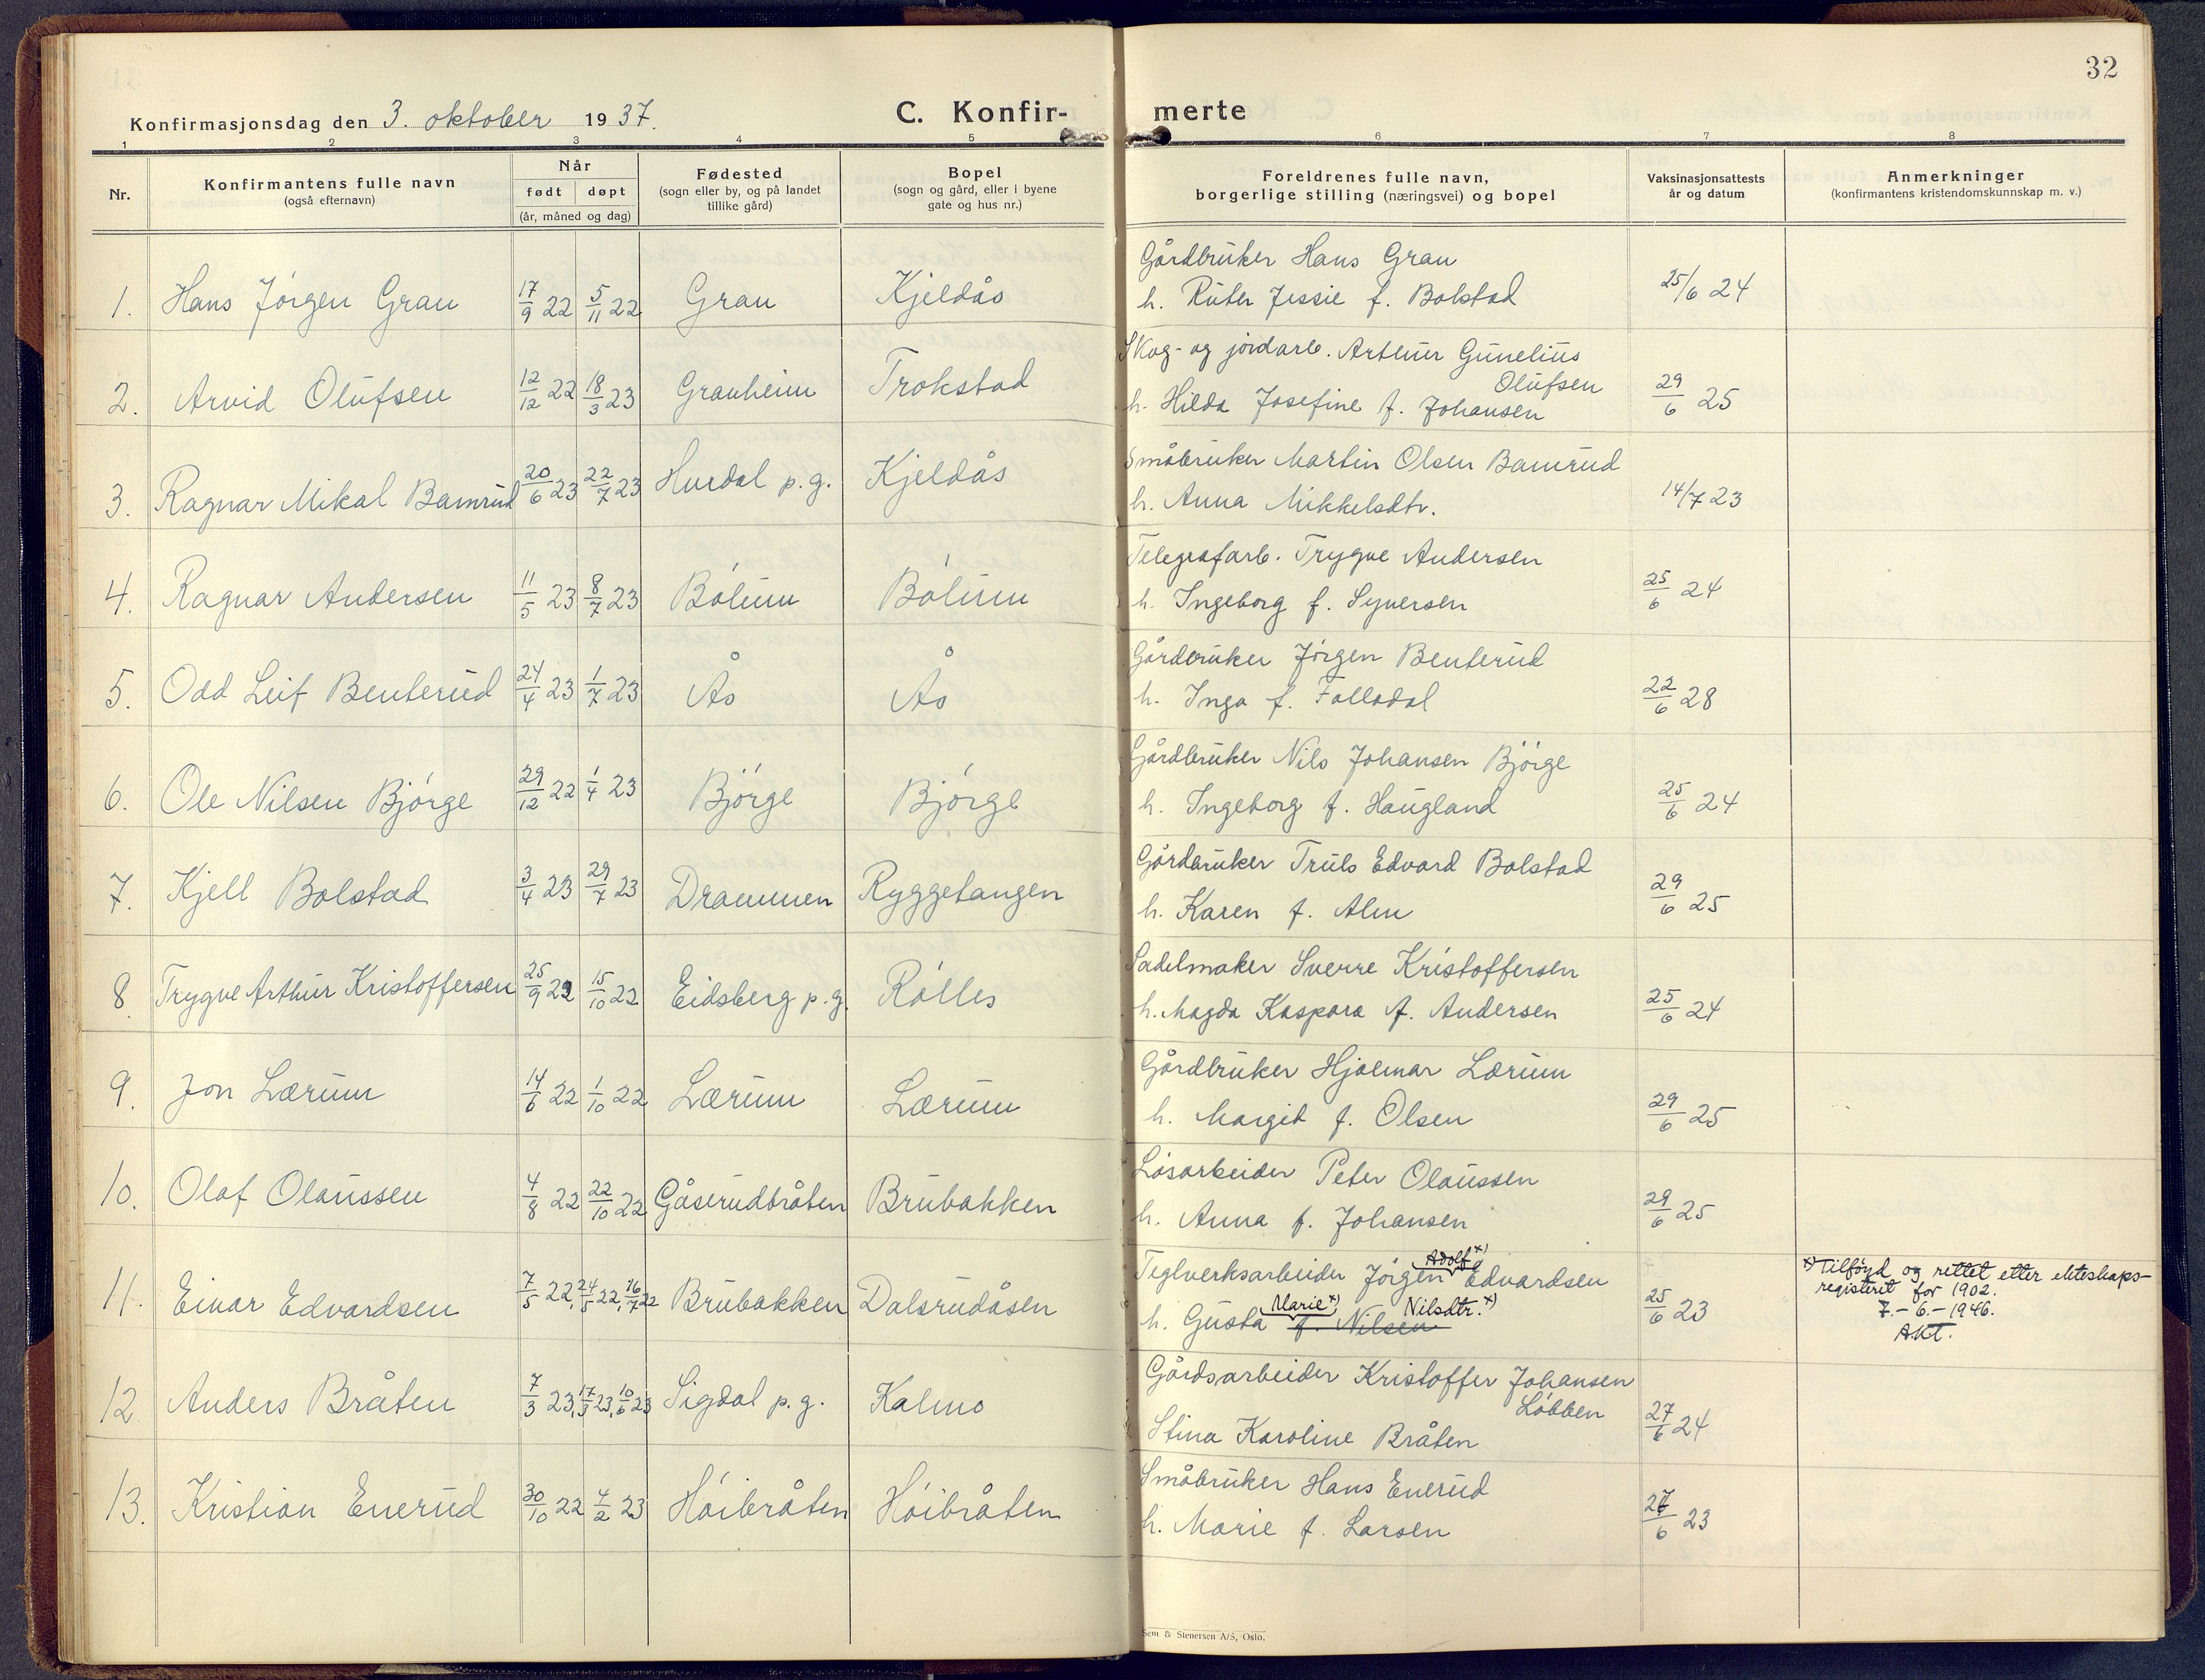 32
Konfirmasjonsdag den 3. oktober 1937.
C. Konfir-merte
1 2 3 4 5 6 7 8
Nr.
Konfirmantens fulle navn
(også efternavn)
Når
født døpt
(år, måned og dag)
Fødested
(sogn eller by, og på landet
tillike gård)
Bopel
(sogn og gård, eller i byene
gate og hus nr.)
Foreldrenes fulle navn,
borgerlige stilling (næringsvei) og bopel
Vaksinasjonsattests
år og datum
Anmerkninger
(konfirmantens kristendomskunnskap m. v.)
1. Hans Jörgen Gran 17/9 22 5/11 22 Gran Kjeldås
Gårdbruker Hans Gran
h. Ruter Jessie f. Bolstad 25/6 24
2. Arvid Olufsen 12/12 22 18/3 23 Granheim Trokstad
Skog- og jordarb. Arthur Gunelius
Olufsen
h. Hilda Josefine f. Johansen 29/6 25
3. Ragnar Mikal Bamrud 20/6 23 22/7 23 Hurdal p.g. Kjeldås
Småbruker Martin Olsen Bamrud
h. Anna Mikkelsdtr. 14/7 23
4. Ragnar Andersen 11/5 23 8/7 23 Bólum Bólum
Telegrafarb. Trygve Andersen
h. Ingeborg f. Syversen 25/6 24
5. Odd Leif Benterud 24/4 23 1/7 23 Ås Ås
Gårdbruker Jörgen Benterud
h. Inga f. Follodal 22/6 28
6. Ole Nilsen Bjórge 29/12 22 1/4 23 Bjórge Bjórge
Gårdbruker Nils Johansen Bjórge
h. Ingeborg f. Haugland 25/6 24
7. Kjell Bolstad 3/4 23 29/7 23 Drammen Ryggetangen
Gårdbruker Truls Edvard Bolstad
h. Karen f. Alm 29/6 25
8. Trygve Arthur Kristoffersen 25/9 22 15/10 22 Eidsberg p.g. Rólles
Sadelmaker Sverre Kristoffersen
h. Magda Kaspara f. Andersen 25/6 24
9. Jon Lærum 14/6 22 1/10 22 Lærum Lærum
Gårdbruker Hjalmar Lærum
h. Margit f. Olsen 29/6 25
10. Olaf Olaussen 4/8 22 22/10 22 Gåserudbråten Brubakken
Lósarbeider Peter Olaussen
h. Anna f. Johansen 29/6 25
11. Einar Edvardsen 7/5 22, 24/5 22, 16/7 22 Brubakken Dalsrudåsen
Adolf x)
Teglverksarbeider Jörgen Edvardsen
Marie x) Nilsdtr. x)
h. Gusta f. Nilsen 25/6 23
x) Tilføyd og rettet etter ekteskaps-
registeret for 1902.
7.-6.-1946.
A.K.T.
12. Anders Bråten 7/3 23, 17/3 23, 10/6 23 Sigdal p.g. Kalmo
Gårdsarbeider Kristoffer Johansen
Lóbben
Stina Karoline Bråten 27/6 24
13. Kristian Enerud 30/10 22 4/2 23 Hóibråten Hóibråten
Småbruker Hans Enerud
h. Marie f. Larsen 27/6 23
Sem & Stenersen A/S, Oslo.